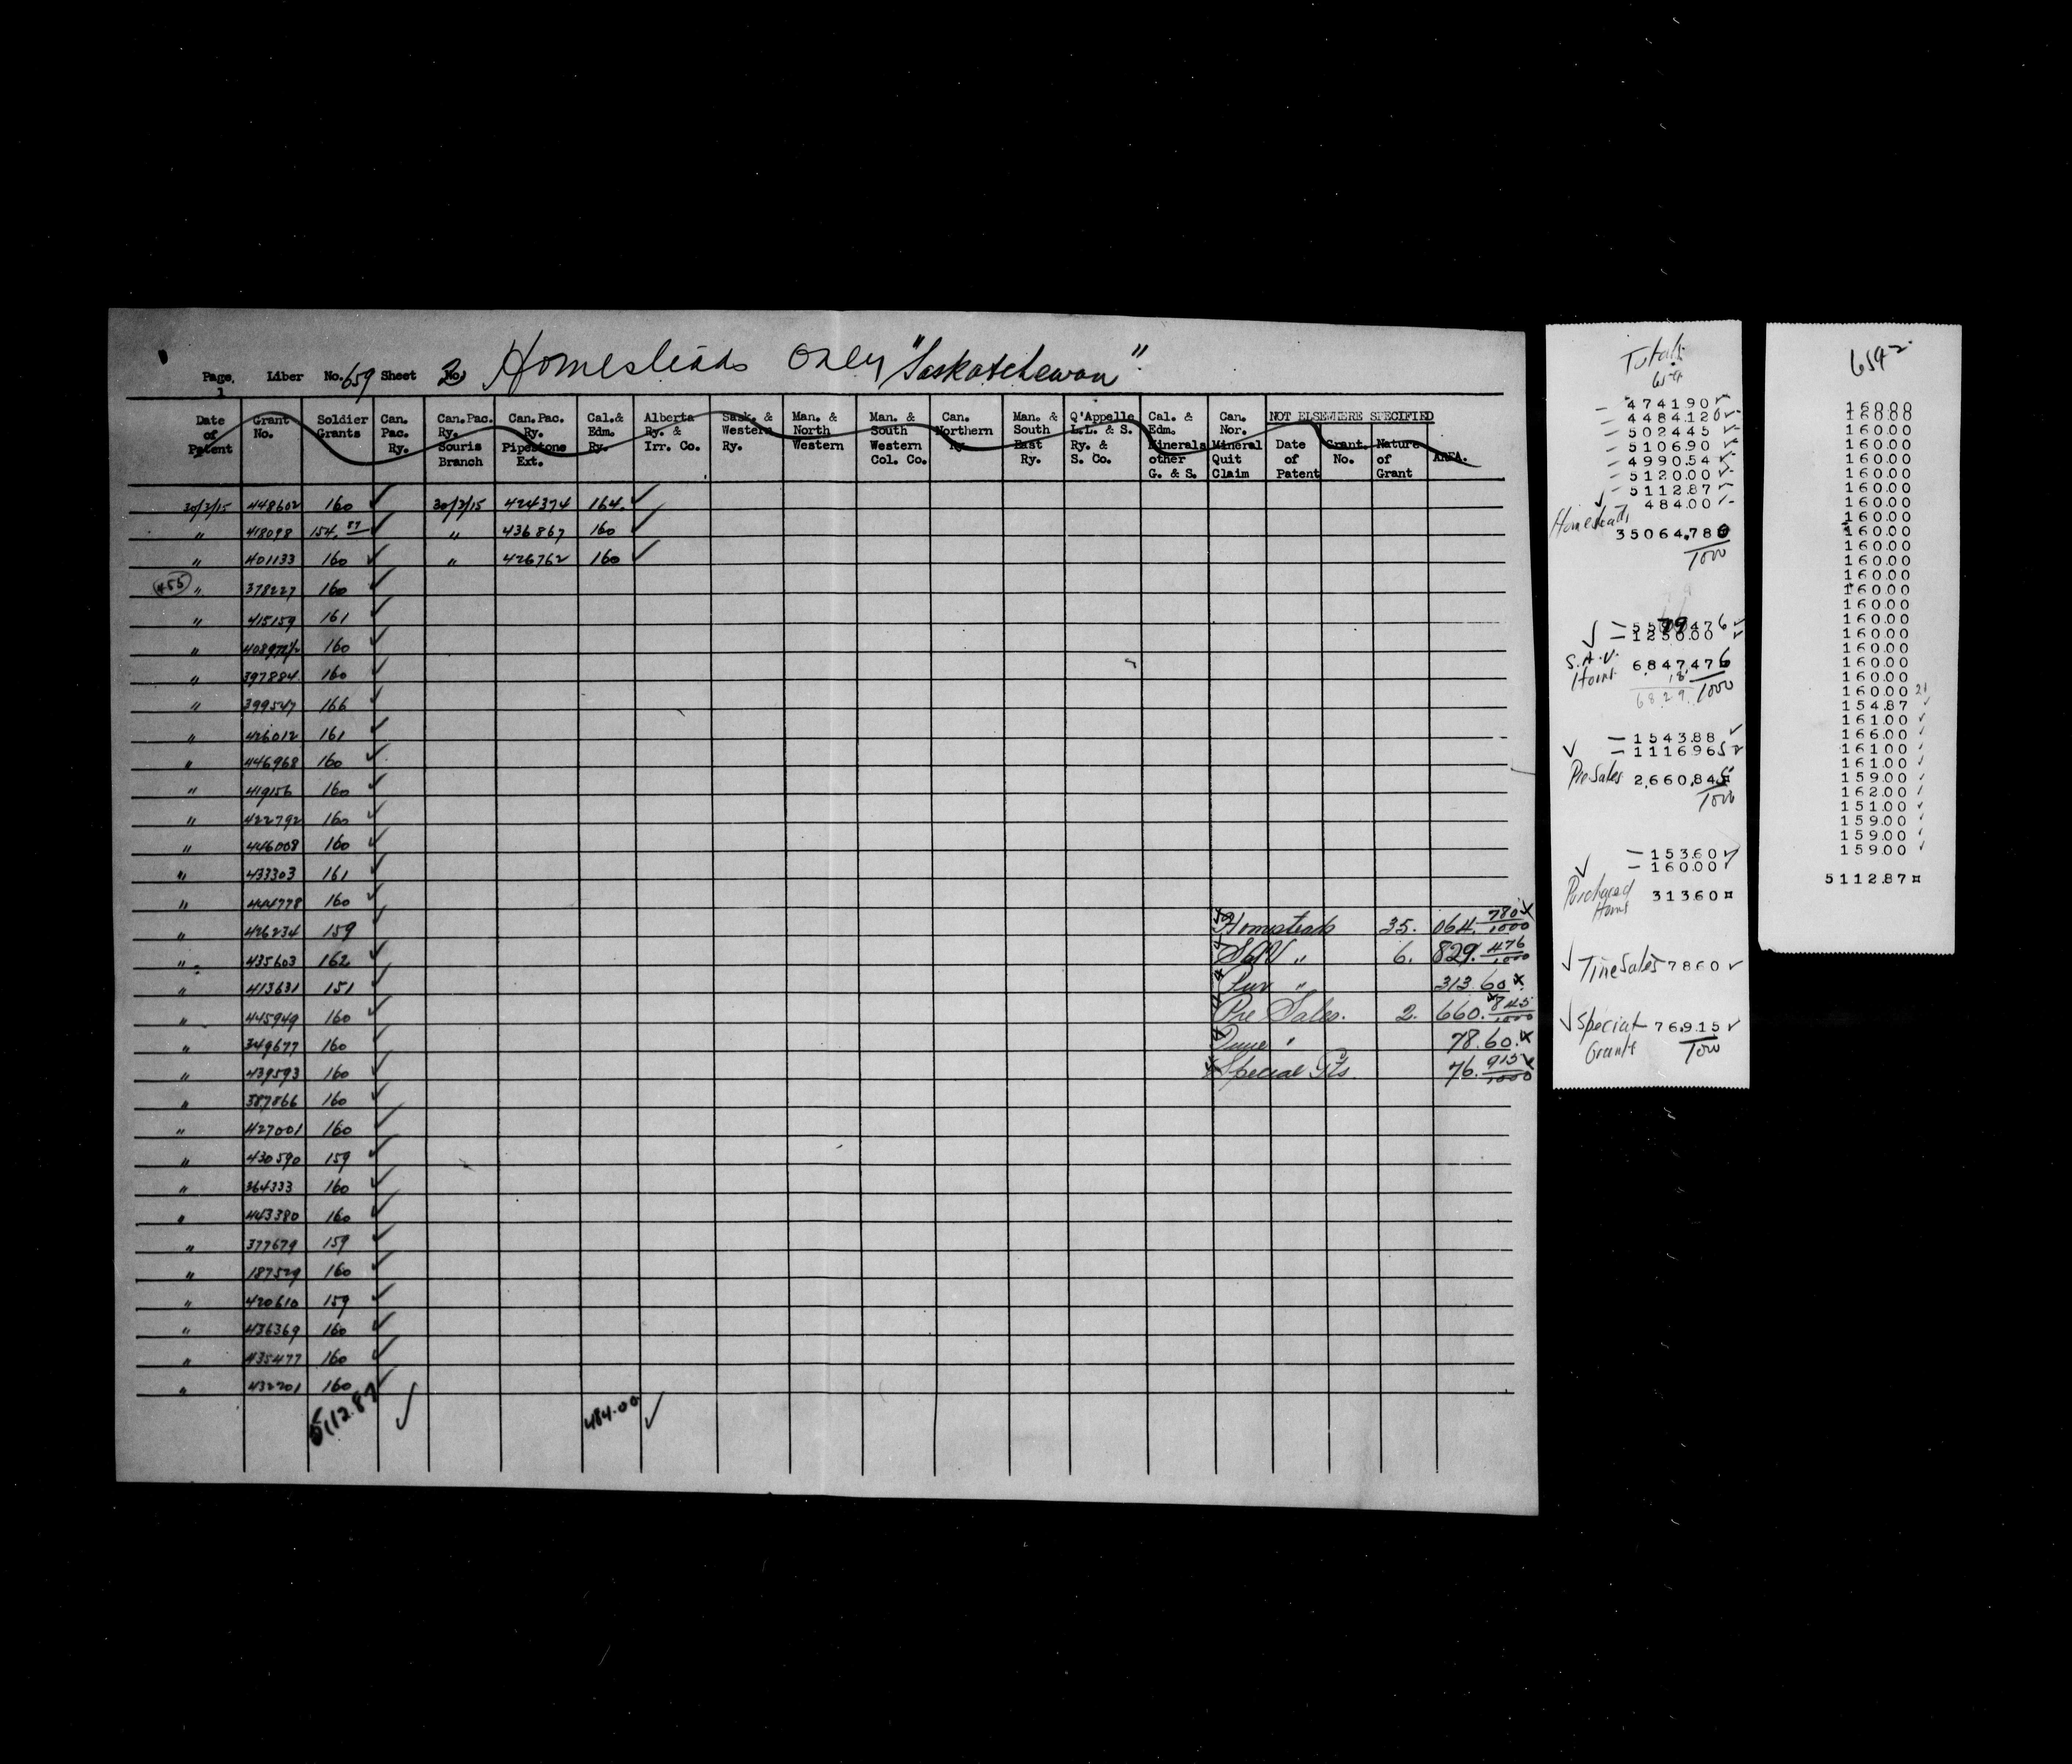 Page, Liber No. 659 Sheet No. 2 Homesteads Only "Saskatchewan"
1
Date of Patent | Grant No. | Soldier Grants | Can. Pac. Ry. | Can. Pac. Ry. Souris Branch | Can. Pac. Ry. Pipestone Ext. | Cal. & Edm. Ry. | Alberta Ry. & Irr. Co. | Sask. & Western Ry. | Man. & North Western | Man. & South Western Col. Co. | Can. Northern Ry. | Man. & South East Ry. | Q'Appelle L.L. & S. Ry. & S. Co. | Cal. & Edm. Minerals other G. & S. | Can. Nor. Mineral Quit Claim | NOT ELSEWHERE SPECIFIED Date of Patent | Grant. No. | Nature of Grant | AREA.
30/3/15 448602 160 ✓ 30/3/15 424374 164. ✓
" 418098 154.87 ✓ " 436867 160 ✓
" 401133 160 ✓ " 426762 160 ✓
455 " 378227 160 ✓
" 415159 161 ✓
" 160 ✓
" 397884 160 ✓
" 399547 166 ✓
" 426012 161 ✓
" 446968 160 ✓
" 419156 160 ✓
" 422792 160 ✓
" 446008 160 ✓
" 433303 161 ✓
" 444778 160 ✓
" 426234 159 ✓ Homesteads 35. 064. 780/1000
" 435603 162 ✓ SAV " 6. 829. 476/1000
" 413631 151 ✓ Pur " 313.60
" 445949 160 ✓ Pre Sales. 2. 660. 845/1000
" 349677 160 ✓ " 78.60.
" 439593 160 ✓ Special Gts. 76. 915/1000
" 387866 160 ✓
" 427001 160 ✓
" 430590 159 ✓
" 364333 160 ✓
" 443380 160 ✓
" 377679 159 ✓
" 187529 160 ✓
" 420610 159 ✓
" 436369 160 ✓
" 435477 160 ✓
" 432201 160 ✓
5112.87 ✓ 484.00 ✓
Totals
659
4741.90 ✓
4484.120 ✓
5024.45 ✓
5106.90 ✓
4990.54 ✓
5120.00 ✓
5112.87 ✓
484.00 ✓
Homesteads
35064.780
1000
1250.00
S.A.V. 6,847.476
Homs. 18. 1000
6829.
1543.88 ✓
1116965 ✓
Pre Sales 2,660.845
1000
153.60 ✓
160.00 ✓
Purchased 313.60 ¤
Homs
✓ Time Sales 78.60 ✓
✓ Special 76.915 ✓
Grants 1000
659-2
160.00
160.00
160.00
160.00
160.00
160.00
160.00
160.00
160.00
160.00
160.00
160.00
160.00
160.00
160.00
160.00
160.00
160.00
160.00
160.00
160.00 21
154.87 ✓
161.00 ✓
166.00 ✓
161.00 ✓
161.00 ✓
159.00 ✓
162.00 ✓
151.00 ✓
159.00 ✓
159.00 ✓
159.00 ✓
5112.87 ¤